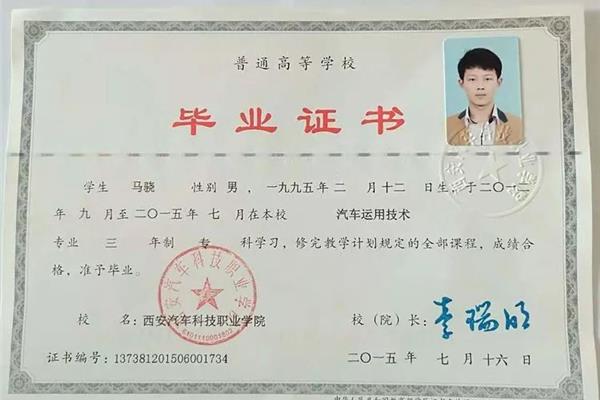 普通高等学校
毕业证书
学生 马骁 性别 男，一九九五年 二 月 十二 日生，于二〇一二
年 九 月至二〇一五年 七 月在本校 汽车运用技术
专业 三 年制 专 科学习，修完教学计划规定的全部课程，成绩合
格，准予毕业。
西安汽车科技职业学院
6101110001802
校 名：西安汽车科技职业学院 校（院）长：李瑞明
证书编号：137381201506001734 二〇一五年 七 月 十六 日